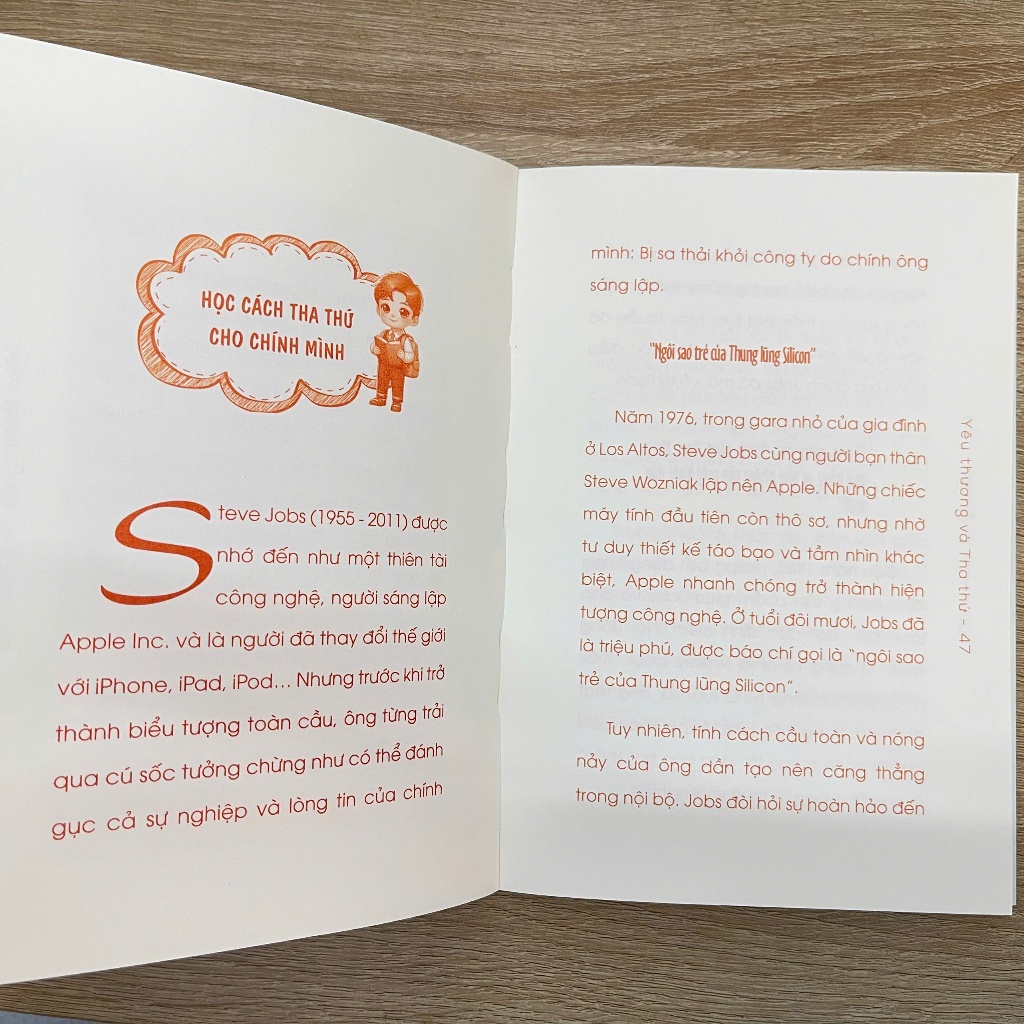 HỌC CÁCH THA THỨ
CHO CHÍNH MÌNH
Steve Jobs (1955 - 2011) được
nhớ đến như một thiên tài
công nghệ, người sáng lập
Apple Inc. và là người đã thay đổi thế giới
với iPhone, iPad, iPod... Nhưng trước khi trở
thành biểu tượng toàn cầu, ông từng trải
qua cú sốc tưởng chừng như có thể đánh
gục cả sự nghiệp và lòng tin của chính
mình: Bị sa thải khỏi công ty do chính ông
sáng lập.
"Ngôi sao trẻ của Thung lũng Silicon"
Năm 1976, trong gara nhỏ của gia đình
ở Los Altos, Steve Jobs cùng người bạn thân
Steve Wozniak lập nên Apple. Những chiếc
máy tính đầu tiên còn thô sơ, nhưng nhờ
tư duy thiết kế táo bạo và tầm nhìn khác
biệt, Apple nhanh chóng trở thành hiện
tượng công nghệ. Ở tuổi đôi mươi, Jobs đã
là triệu phú, được báo chí gọi là "ngôi sao
trẻ của Thung lũng Silicon".
Tuy nhiên, tính cách cầu toàn và nóng
nảy của ông dần tạo nên căng thẳng
trong nội bộ. Jobs đòi hỏi sự hoàn hảo đến
Yêu thương và Tha thứ - 47